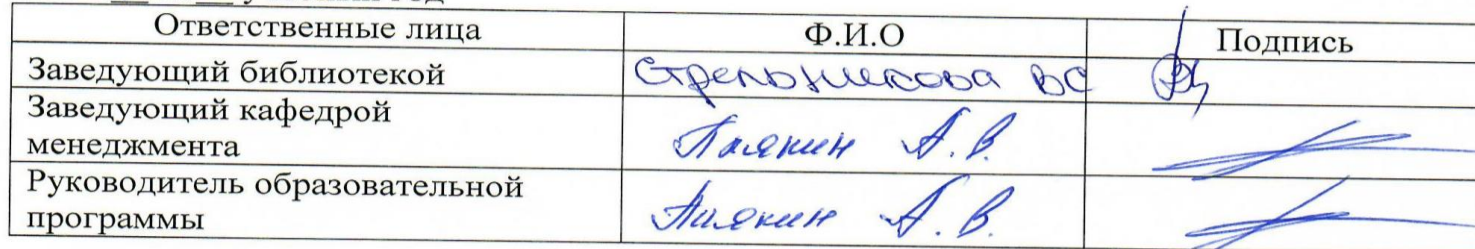 Ответственные лица Ф.И.О Подпись
Заведующий библиотекой Стрельникова ВС
Заведующий кафедрой
менеджмента А.В.
Руководитель образовательной
программы А.В.